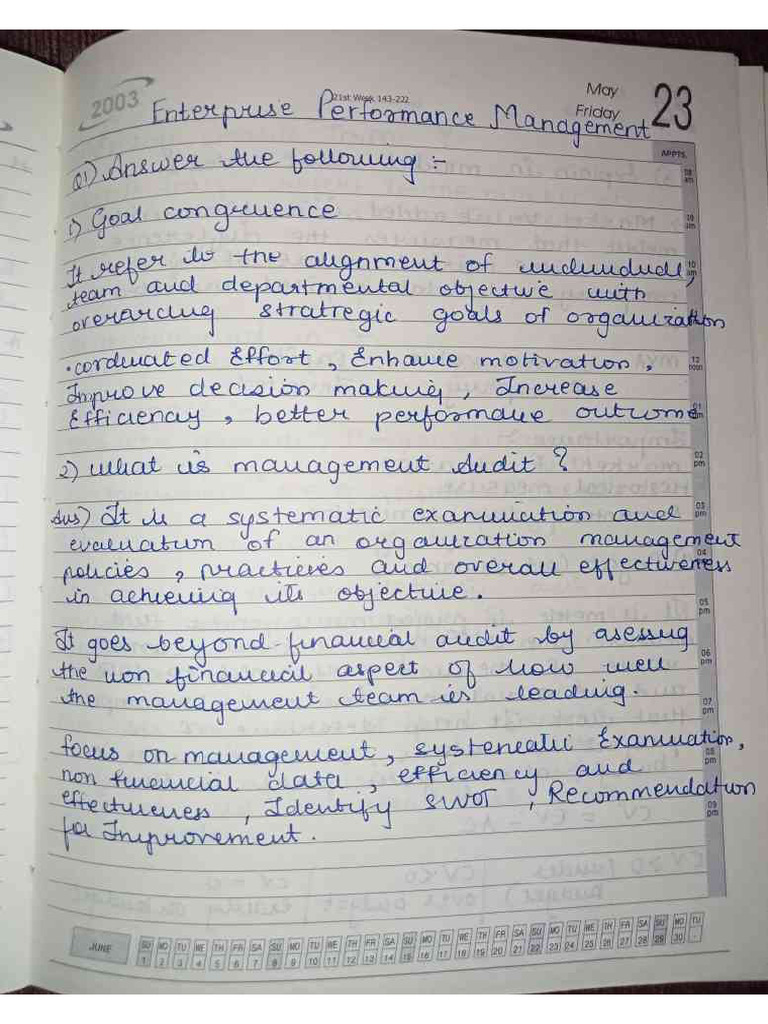 2003
21st Week 143-222
May
Friday
23
Enterprise Performance Management
APPTS.
Q1) Answer the following :-
1) Goal congruence
It refer to the alignment of individual,
team and departmental objective with
overarcing stratregic goals of organization
• cordinated Effort, Enhance motivation,
Improve decision making, Increase
Efficiency, better performance outcome
2) what is management Audit ?
Ans) It is a systematic examination and
evaluation of an organization management
policies, practices and overall effectiveness
in achieving its objective.
It goes beyond financial audit by asessing
the non financial aspect of how well
the management team is leading.
focus on management, systematic Examination,
non financial data, efficiency and
effectiveness, Identify SWOT, Recommendation
for Improvement.
08 am
10 am
10 am
12 noon
01 pm
02 pm
03 pm
04
05 pm
06 pm
07 pm
08 pm
09 pm
JUNE
SU MO TU WE TH FR SA SU MO TU WE TH FR SA SU MO TU WE TH FR SA SU MO TU WE TH FR SA SU MO TU
1 2 3 4 5 6 7 8 9 10 11 12 13 14 15 16 17 18 19 20 21 22 23 24 25 26 27 28 29 30